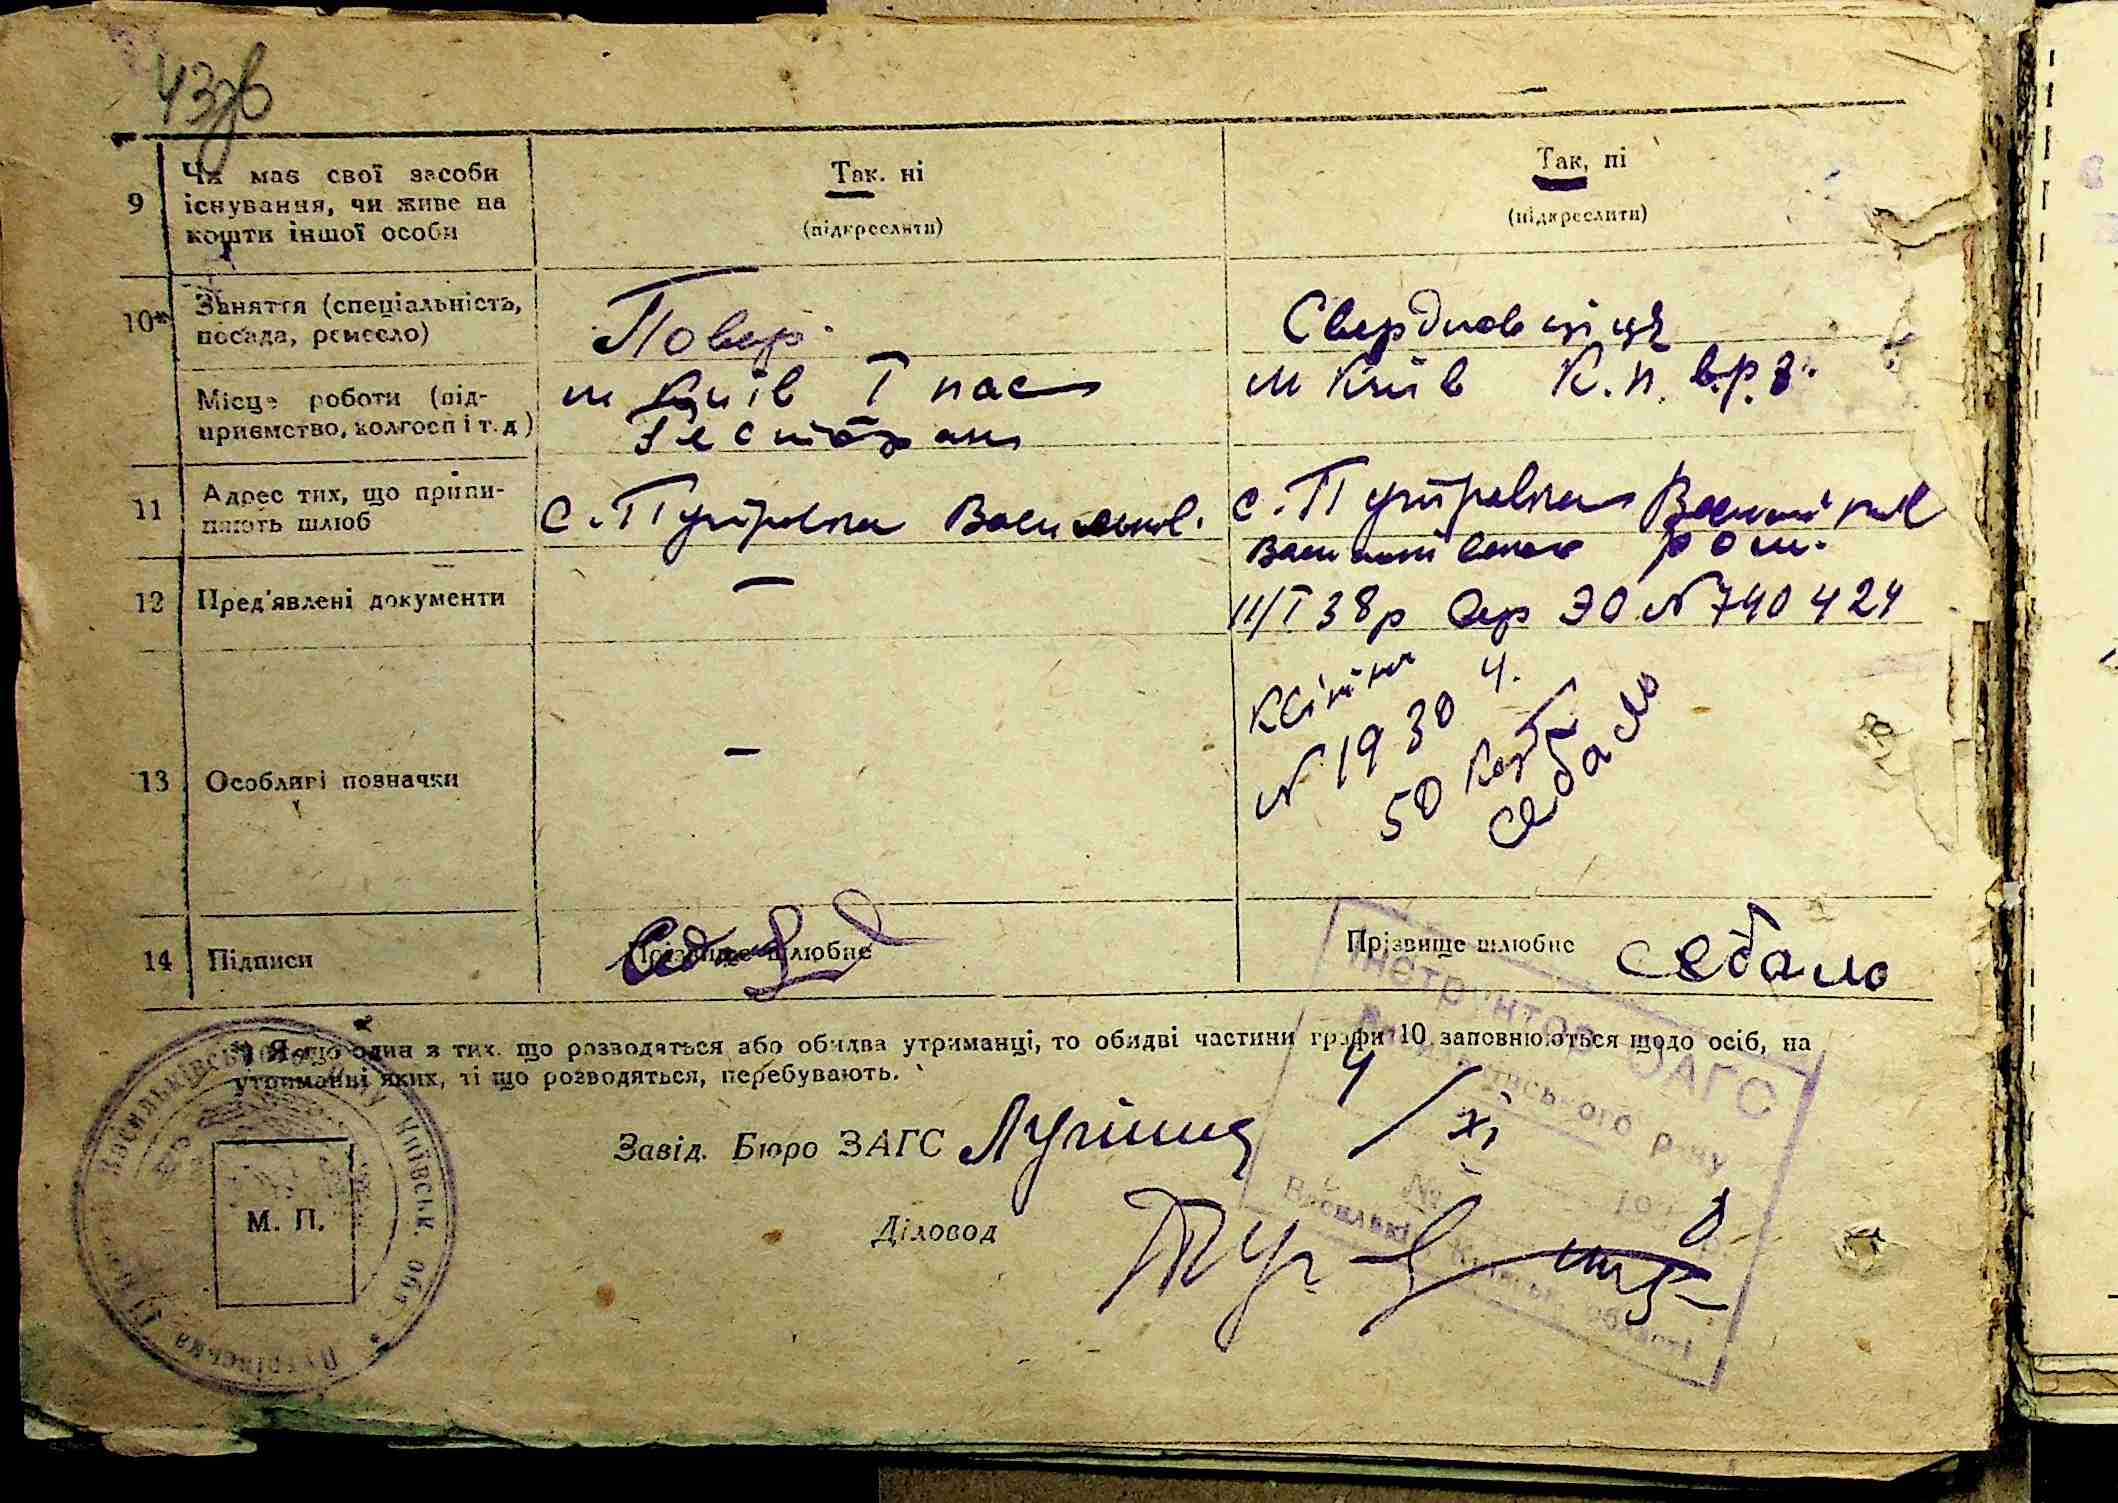 43зв
9
Чи має свої засоби
існування, чи живе на
кошти іншої особи
Так. ні
(підкреслити)
Так, ні
(підкреслити)
10*
Заняття (спеціальність,
посада, ремесло)
Повар
Свердловщиця
Місце роботи (під-
приємство, колгосп і т. д)
м Київ І пас
Ресторан
м Київ К.п. в.р.з.
11
Адрес тих, що припи-
няють шлюб
с. Путрівка Васильків.
с. Путрівка
рош.
12
Пред'явлені документи
—
11/І 38р Сер ЭО № 740424
13
Особливі позначки
—
Квітан ч.
№ 1930
50 карб
Седало
14
Підписи
Прізвище шлюбне
Прізвище шлюбне Седало
*) Якщо один з тих, що розводяться або обидва утриманці, то обидві частини графи 10 заповнюються щодо осіб, на
утриманні яких, ті що розводяться, перебувають.
Завід. Бюро ЗАГС
4/XI
Діловод
М. П.
Путрівська Васильківського р-ну Київськ. обл.
Інструктор ЗАГС
Васильківського р-ну
№
Васильків Київськ. області